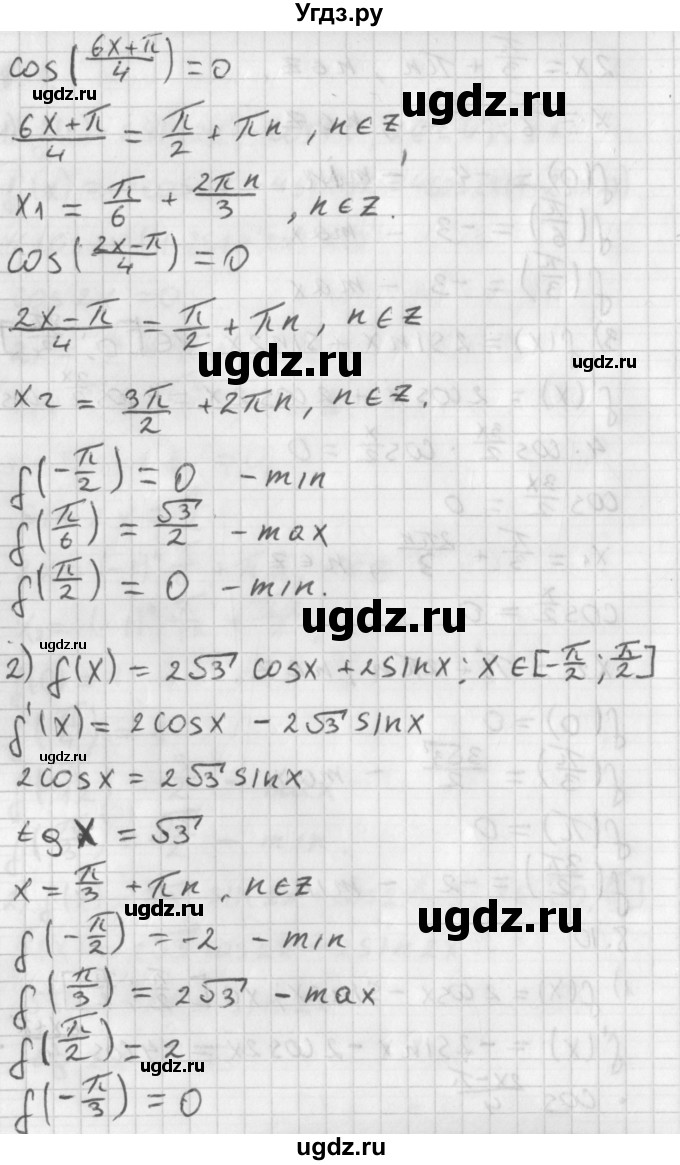 Угдз.ру
cos((6x+π)/4) = 0
ugdz.ru
ugdz.ru
(6x+π)/4 = π/2 + πn, n∈Z,
x1 = π/6 + 2πn/3, n∈Z.
cos((2x-π)/4) = 0
(2x-π)/4 = π/2 + πn, n∈Z
ugdz.ru
ugdz.ru
x2 = 3π/2 + 2πn, n∈Z.
f(-π/2) = 0 - min
f(π/6) = √3/2 - max
f(π/2) = 0 - min.
ugdz.ru
ugdz.ru
2) f(x) = 2√3 cosx + 2sinx; x∈[-π/2; π/2]
f'(x) = 2cosx - 2√3 sinx
2cosx = 2√3 sinx
tgx = √3
x = π/3 + πn, n∈Z
ugdz.ru
ugdz.ru
f(-π/2) = -2 - min
f(π/3) = 2√3 - max
f(π/2) = 2
ugdz.ru
f(-π/3) = 0
ugdz.ru